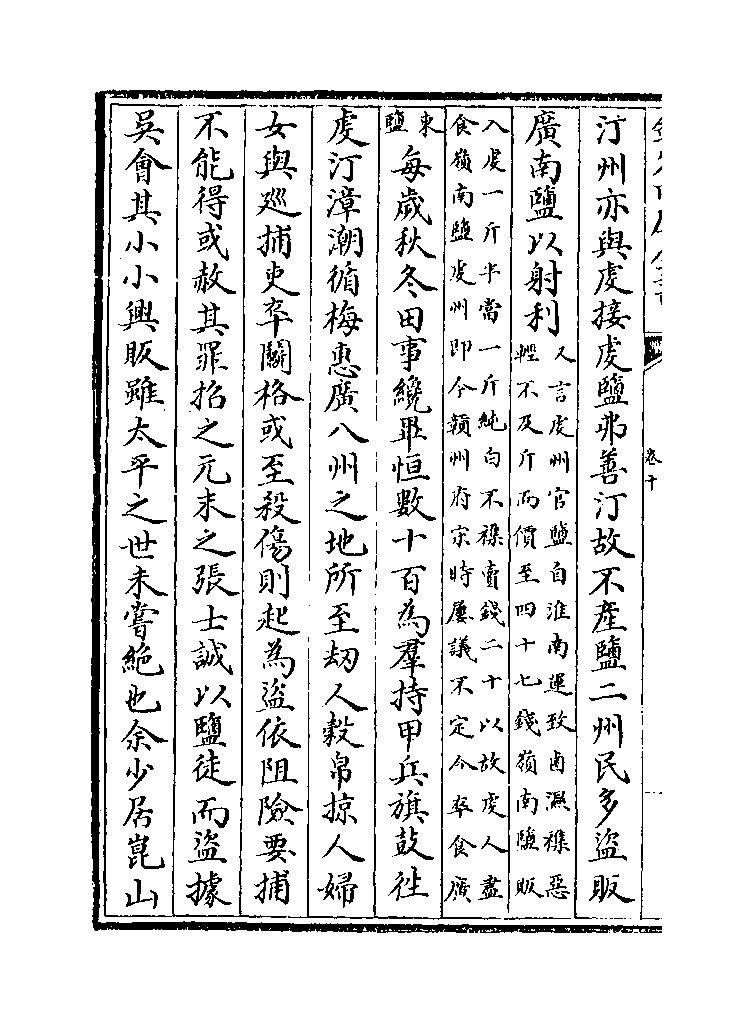 卷十
汀州亦與虔接虔鹽弗善汀故不產鹽二州民多盜販
廣南鹽以射利
又言虔州官鹽自淮南運致鹵濕襍惡
輕不及斤而價至四十七錢嶺南鹽販
入虔一斤半當一斤純白不襍賣錢二十以故虔人盡
食嶺南鹽虔州即今贛州府宋時屢議不定今率食廣
東
鹽
每歲秋冬田事纔畢恒數十百為羣持甲兵旗鼓徃
虔汀漳潮循梅惠廣八州之地所至刼人穀帛掠人婦
女與廵捕吏卒鬭格或至殺傷則起為盜依阻險要捕
不能得或赦其罪招之元末之張士誠以鹽徒而盜據
吳會其小小興販雖太平之世未嘗絶也余少居崑山